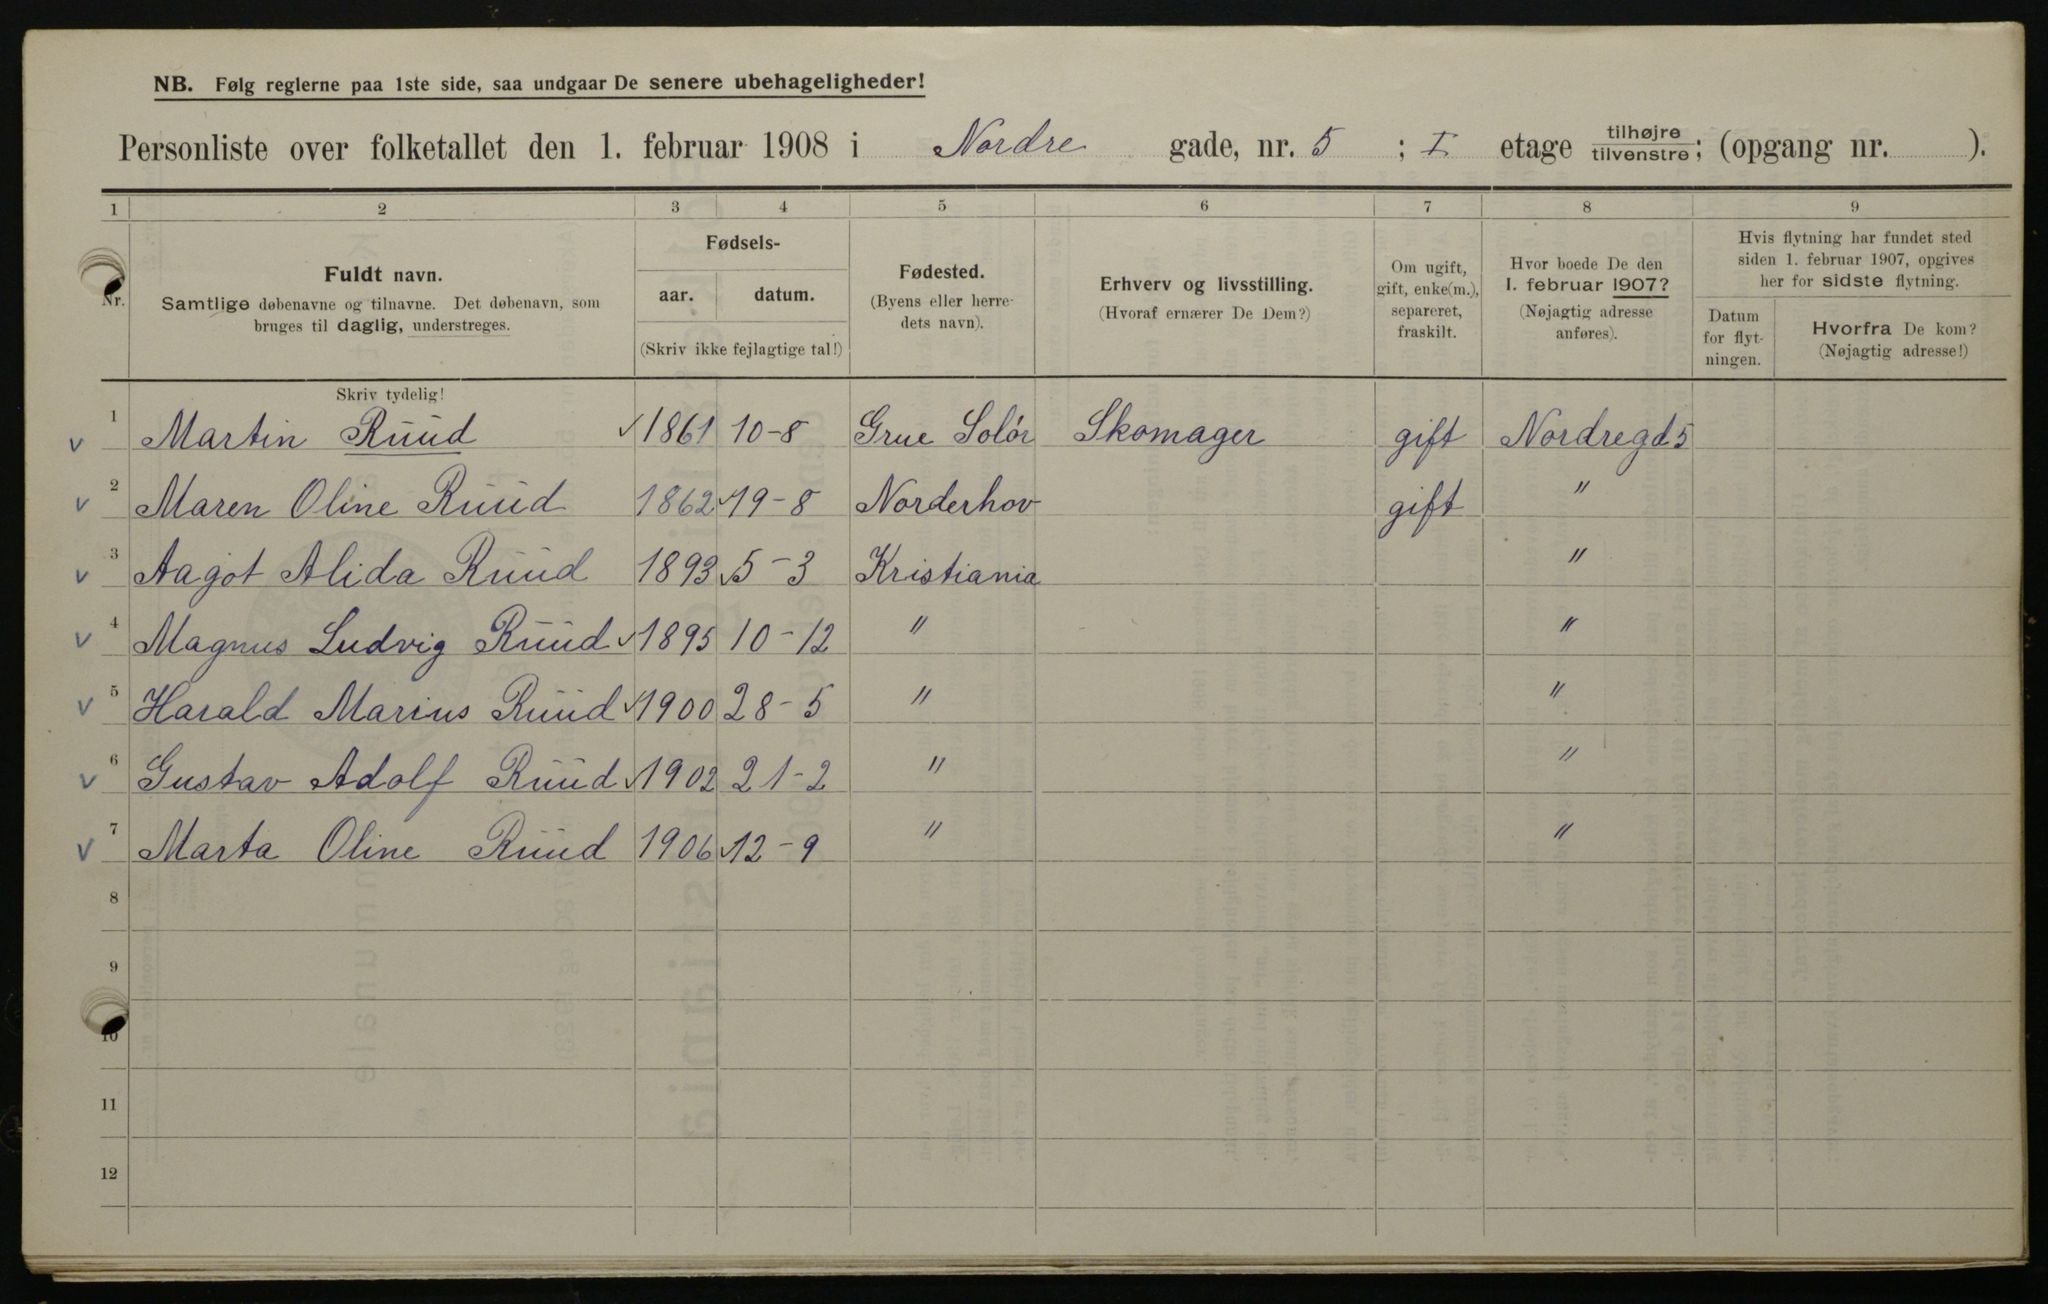 NB. Følg reglerne paa 1ste side, saa undgaar De senere ubehageligheder!
Personliste over folketallet den 1. februar 1908 i Nordre gade, nr. 5 ; I etage tilhøjre/tilvenstre; (opgang nr. ).
1 2 3 4 5 6 7 8 9
Nr.
Fuldt navn.
Samtlige døbenavne og tilnavne. Det døbenavn, som
bruges til daglig, understreges.
Skriv tydelig!
Fødsels-
aar. datum.
(Skriv ikke fejlagtige tal!)
Fødested.
(Byens eller herre-
dets navn).
Erhverv og livsstilling.
(Hvoraf ernærer De Dem?)
Om ugift,
gift, enke(m.),
separeret,
fraskilt.
Hvor boede De den
1. februar 1907?
(Nøjagtig adresse
anføres).
Hvis flytning har fundet sted
siden 1. februar 1907, opgives
her for sidste flytning.
Datum
for flyt-
ningen.
Hvorfra De kom?
(Nøjagtig adresse!)
v 1 Martin Ruud ✓ 1861 10-8 Grue Solør Skomager gift Nordregd 5
v 2 Maren Oline Ruud 1862 ✓ 19-8 Norderhov gift "
v 3 Aagot Alida Ruud 1893 ✓ 5-3 Kristiania "
v 4 Magnus Ludvig Ruud ✓ 1895 10-12 " "
v 5 Harald Marius Ruud ✓ 1900 28-5 " "
v 6 Gustav Adolf Ruud ✓ 1902 21-2 " "
v 7 Marta Oline Ruud 1906 ✓ 12-9 " "
8
9
10
11
12